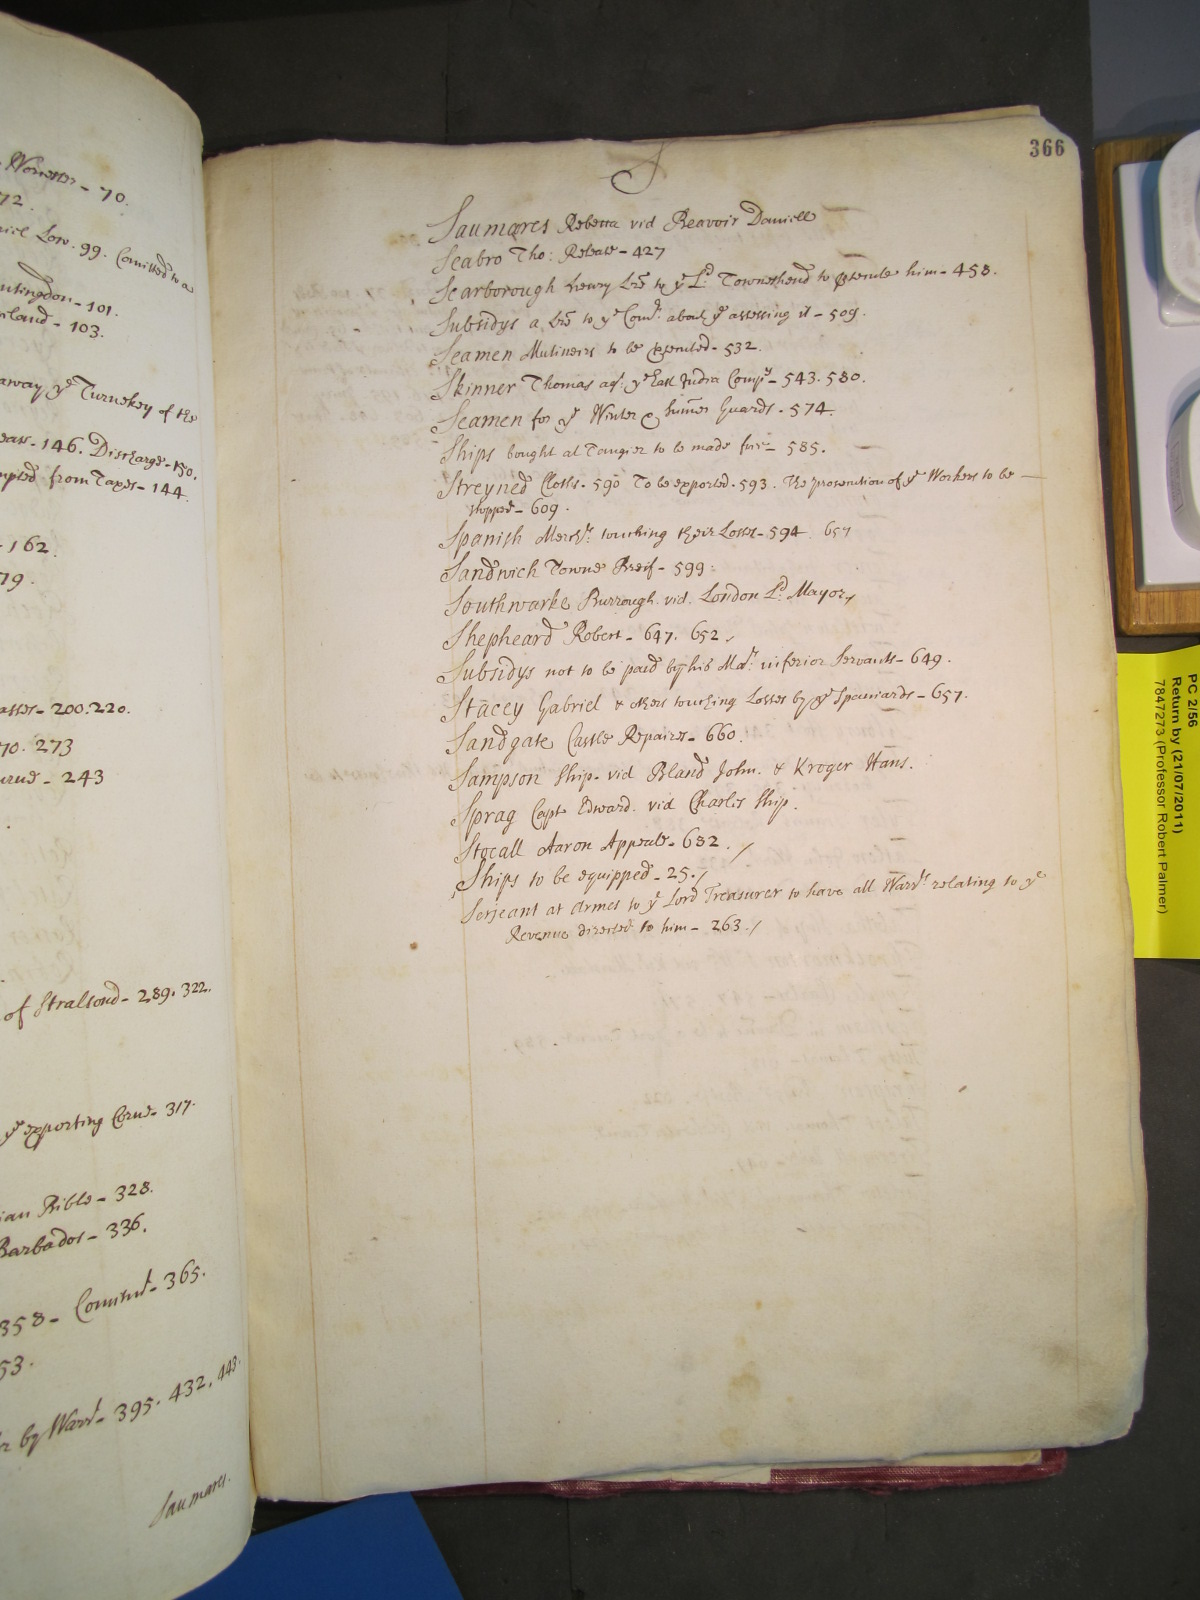 Worcester - 70.
72.
niel Low. 99. Comitted to a
untingdon - 101.
rland - 103.
away yᵉ Turnekey of the
eass - 146. Discharge - 150.
mpted from Taxes - 144.
- 162.
79.
asses - 200. 220.
70. 273
urne - 243
of Stralsond - 289. 322.
yᵉ exporting Corne - 317.
ian Bible - 328.
Barbados - 336.
358 - Comitmᵗ - 365.
53.
or by Warrᵗ - 395. 432. 443.
Saumares.
366
S
Saumares Rebecca vid Beavoir Daniell
Seabro Tho: Release - 427
Scarborough henry Lre to yᵉ Lᵈ Towneshend to prsecute him - 458.
Subsidys a Lre to yᵉ Comʳˢ about yᵉ assessing it - 509.
Seamen Mutineirs to be Executed - 532.
Skinner Thomas agᵗ yᵉ East India Compᵃ - 543. 580.
Seamen for yᵉ Winter & sumer Guards - 574.
Ships bought at Tangier to be made free - 585.
Streyned Cloths - 590 To be exported - 593. the prosecution of yᵉ Workers to be
stopped - 609.
Spanish Merchᵗˢ touching their Losses - 594 657
Sandwich Towne Breif - 599.
Southwarke Burrough. vid. London Lᵈ Mayor
Shepheard Robert - 647. 652.
Subsidys not to be paid by his Maᵗˢ inferior Servants - 649.
Stacey Gabriel & others touching Losses by yᵉ Spaniards - 657.
Sandgate Castle Repaires - 660.
Sampson Ship - vid Bland John. & Kroger Hans.
Sprag Capt Edward. vid Charles Ship.
Stocall Aaron Appeale - 682.
Ships to be equipped - 25.
Serjeant at Armes to yᵉ Lord Treasurer to have all Warrᵗˢ relating to yᵉ
Revenue directed to him - 263.
PC 2/56
Return by (21/07/2011)
7847273 (Professor Robert Palmer)